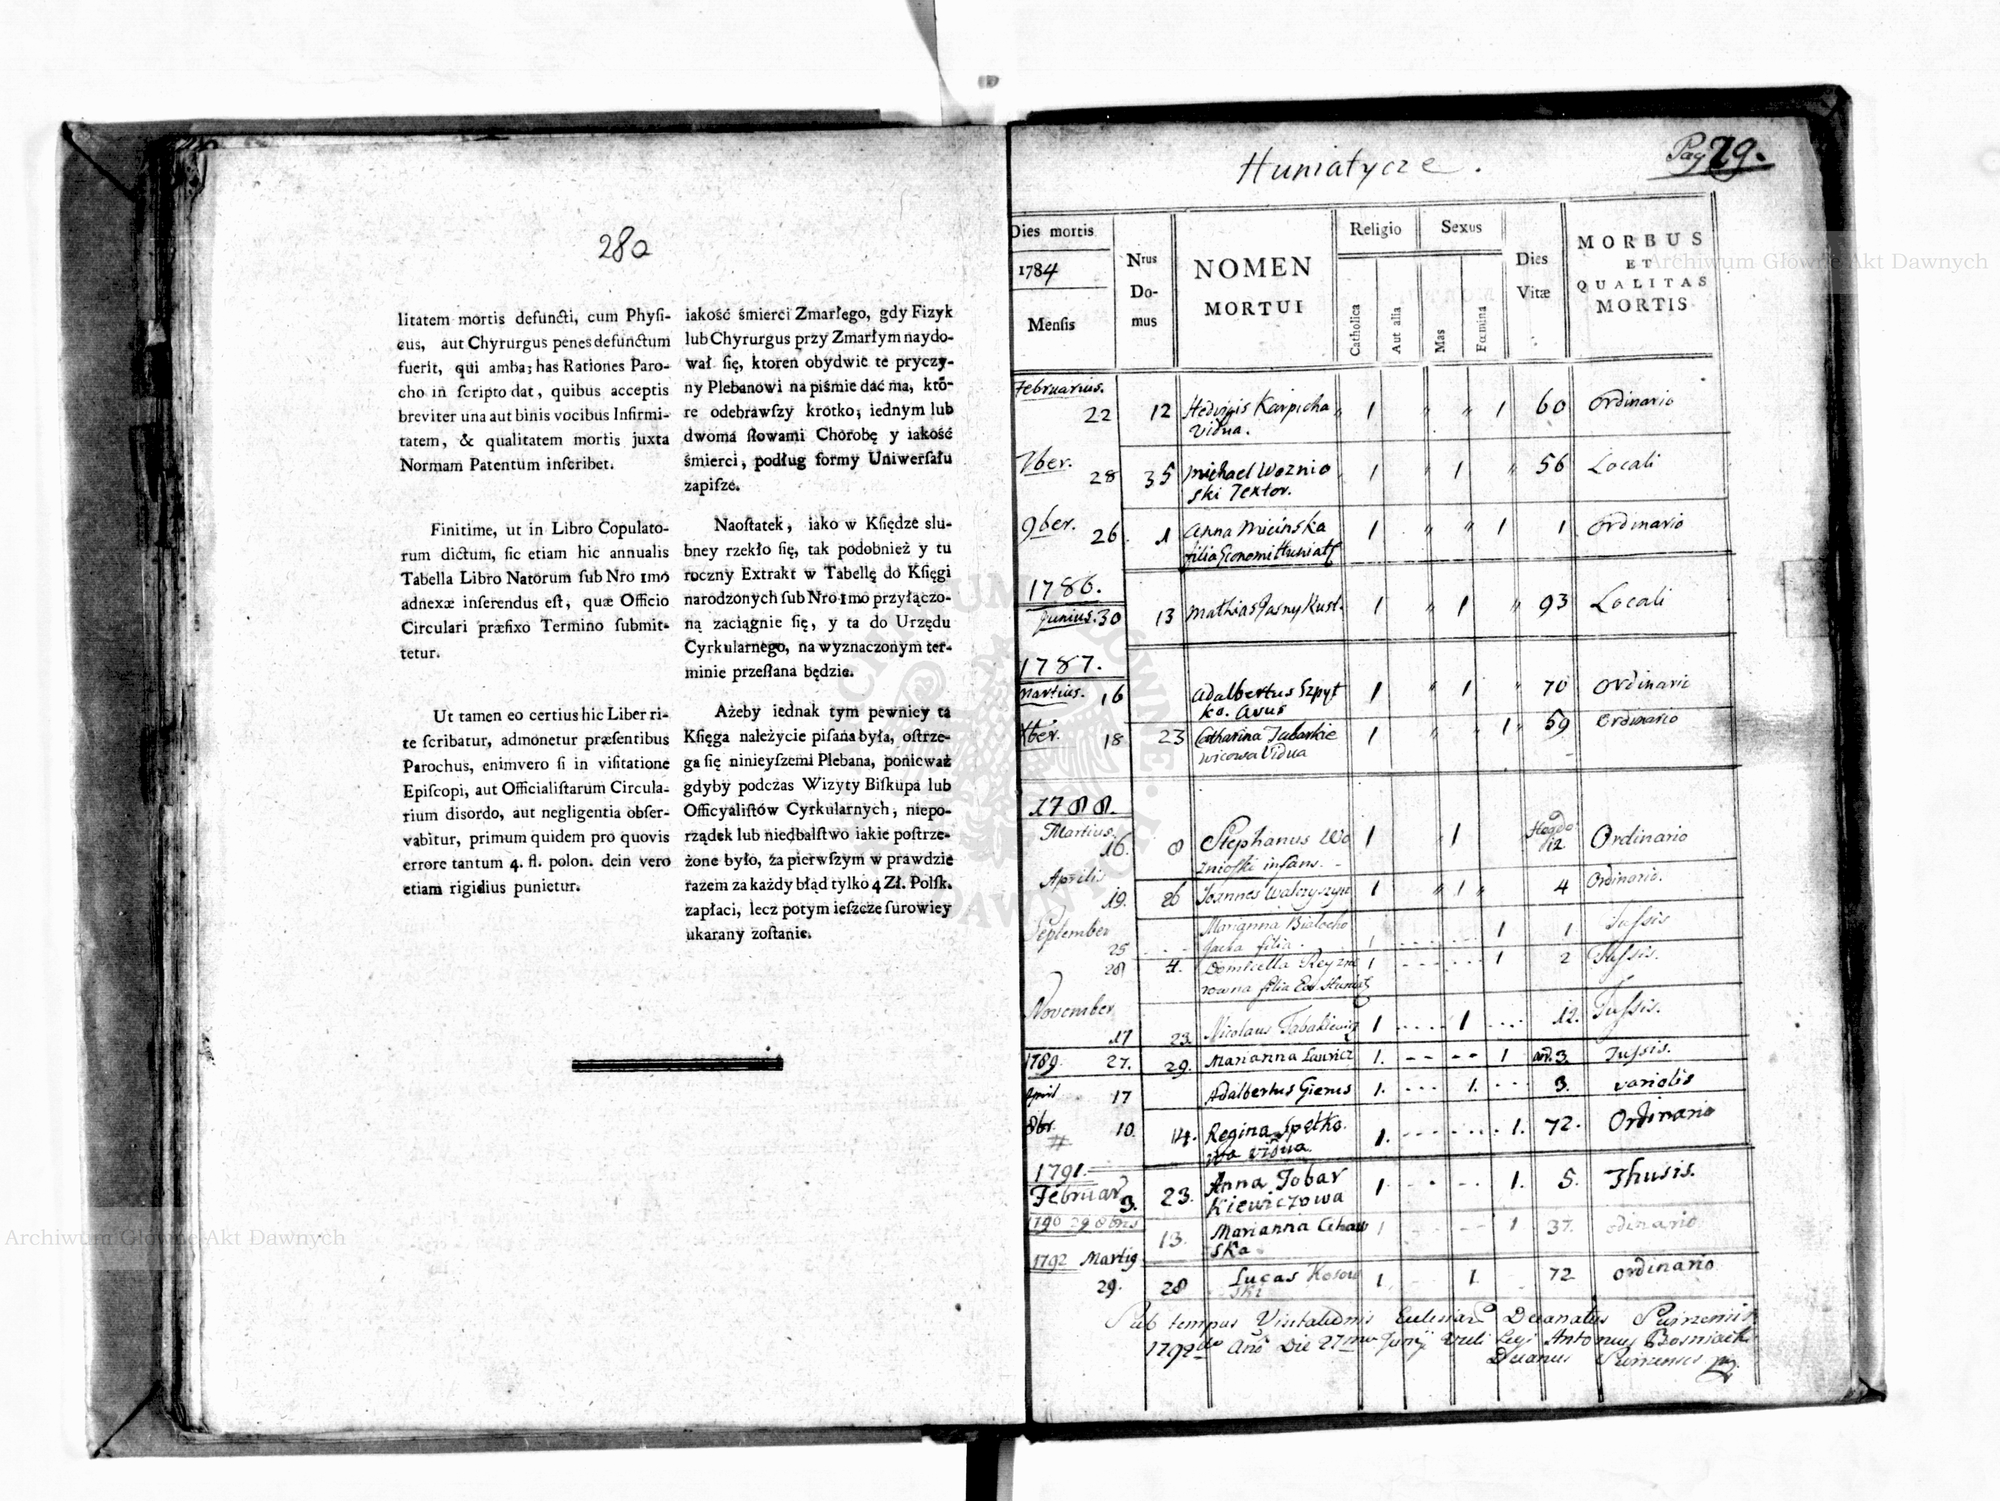 280
litatem mortis defuncti, cum Physi-
cus, aut Chyrurgus penes defunctum
fuerit, qui ambas has Rationes Paro-
cho in scripto dat, quibus acceptis
breviter una aut binis vocibus Infirmi-
tatem, & qualitatem mortis juxta
Normam Patentum inscribet.
Finitime, ut in Libro Copulato-
rum dictum, sic etiam hic annualis
Tabella Libro Natorum sub Nro 1mo
adnexæ inserendus est, quæ Officio
Circulari præfixo Termino submit-
tetur.
Ut tamen eo certius hic Liber ri-
te scribatur, admonetur præsentibus
Parochus, enimvero si in visitatione
Episcopi, aut Officialistarum Circula-
rium disordo, aut negligentia obser-
vabitur, primum quidem pro quovis
errore tantum 4. fl. polon. dein vero
etiam rigidius punietur.
iakość śmierci Zmarłego, gdy Fizyk
lub Chyrurgus przy Zmarłym naydo-
wał się, ktoren obydwie te pryczy-
ny Plebanowi na piśmie dać ma, któ-
re odebrawszy krotko; iednym lub
dwoma słowami Chorobę y iakość
śmierci, podług formy Uniwersału
zapisze.
Naostatek, iako w Księdze slu-
bney rzekło się, tak podobnież y tu
roczny Extrakt w Tabellę do Księgi
narodzonych sub Nro 1mo przyłączo-
ną zaciągnie się, y ta do Urzędu
Cyrkularnego, na wyznaczonym ter-
minie przesłana będzie.
Ażeby iednak tym pewniey ta
Księga należycie pisana była, ostrze-
ga się ninieyszemi Plebana, ponieważ
gdyby podczas Wizyty Biskupa lub
Officyalistów Cyrkularnych, niepo-
rządek lub niedbalstwo iakie postrze-
żone było, za pierwszym w prawdzie
razem za każdy błąd tylko 4 Zł. Polsk.
zapłaci, lecz potym ieszcze surowiey
ukarany zostanie.
Pag 79.
Huniatycze.
Dies mortis
1784
Mensis
Nrus Do-mus
NOMEN MORTUI
Religio
Catholica
Aut alia
Sexus
Mas
Fœmina
Dies Vitæ
MORBUS ET QUALITAS MORTIS
Februarius.
22 12 Hedvigis Karpicha 1 " " 1 60 Ordinario
Vidua.
7ber. 28 35 Michael Woznio 1 " 1 " 56 Locali
ski Textor.
9ber. 26 1 Anna Micinska 1 " " 1 1 Ordinario
filia
1786.
Junius. 30 13 Mathias Jasny Kust. 1 " 1 " 93 Locali
1787.
Martius. 16 Adalbertus Szpyt 1 " 1 " 70 Ordinario
ko. Avus
Xber. 18 23 Catharina Tabarkie 1 " " 1 59 Ordinario
wicowa Vidua
1788.
Martius. 16. 8 Stephanus Wo 1 " 1 " 12 Ordinario
znioski infans.
Aprilis 19. 26 Joannes 1 " 1 " 4 Ordinario.
September 25 Marianna 1 1 1 Tussis
filia.
28 4. 1 1 2 Tussis.
filia
November 17 23. Nicolaus Tabakiewicz 1 1 12. Tussis.
1789. 27. 29. Marianna Lauricz 1. 1 3. Tussis.
April 17 Adalbertus Gierus 1. 1. 3. variolis
8br. 10. 14. Regina Spetko 1. 1. 72. Ordinario
wa vidua.
1791.
Februar 3. 23. Anna Tobar 1. 1. 5. Thusis.
kiewiczowa
1790 29 8bris 13. Marianna 1 1 37. odinario
ska
1792 Martig
29. 28 Lucas Kosow 1 1 72 ordinario
ski
Sub tempus Visitationis Decanatus
1792do Die 27ma Junij Antonius
Decanus
Archiwum Główne Akt Dawnych
Archiwum Główne Akt Dawnych
ARCHIWUM GŁÓWNE AKT DAWNYCH